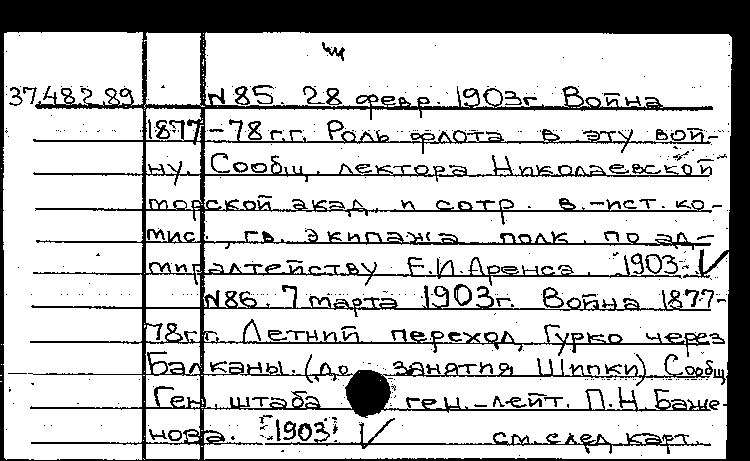 37.482.89 N 85. 28 февр. 1903г. Война
1877-78 г.г. Роль флота в эту вой-
ну. Сообщ. лектора Николаевской
морской акад. и сотр. в.-ист. ко-
мис., гв. экипажа полк. по ад-
миралтейству Е.И.Аренса. 1903.
N 86. 7 марта 1903г. Война 1877-
78г.г. Летний переход Гурко через
Балканы. (до занятия Шипки) Сообщ
Ген. штаба ген.-лейт. П.Н.Баже-
нова. [1903] см. след. карт.